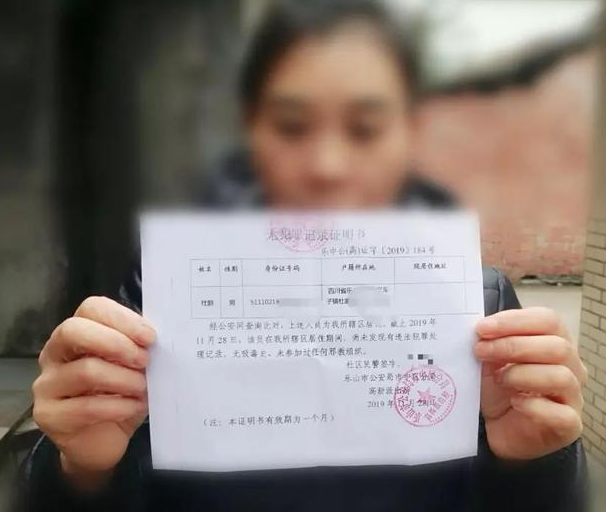 无犯罪记录证明书
乐中公(高)证字〔2019〕184号
姓名 性别 身份证号码 户籍所在地 现居住地址
付 51110219 四川省乐
子镇杜
经公安网查询比对,上述人员为我所辖区居 截止2019年
11月28日,该员在我所辖区居住期间,尚未发现有违法犯罪处
理记录,无吸毒史,未参加过任何邪教组织。
社区民警签字:
乐山市公安局市中区分局
高新派出所
2019年11月28日
(注:本证明书有效期为一个月)